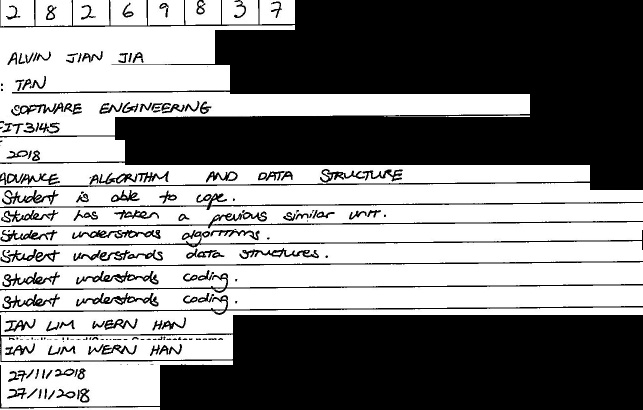 2 8 2 6 9 8 3 7
ALVIN JIAN JIA
: TAN
SOFTWARE ENGINEERING
FIT3145
2018
ADVANCE ALGORITHM AND DATA STRUCTURE
Student is able to cope.
Student has taken a previous similar unit.
Student understands algorithms.
Student understands data structures.
Student understands coding.
Student understands coding.
IAN LIM WERN HAN
IAN LIM WERN HAN
27/11/2018
27/11/2018